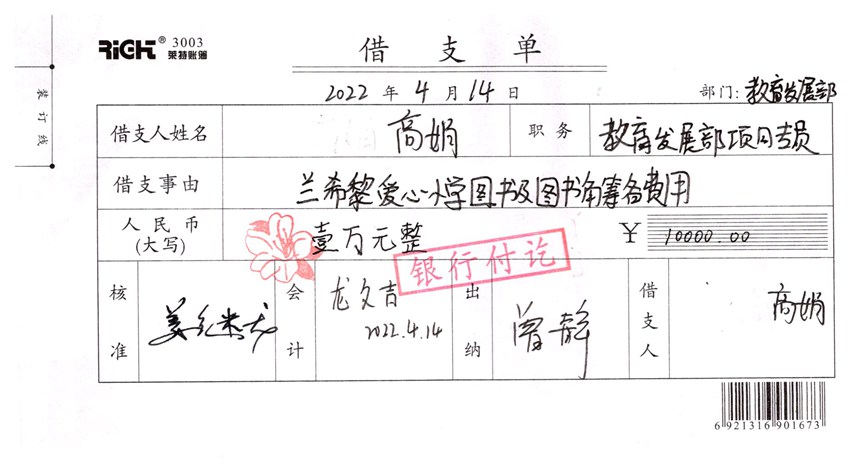 RiGHT® 3003
莱特账簿
借 支 单
2022 年 4 月 14 日
部门: 教育发展部
装订线
借支人姓名 高娟 职务 教育发展部项目专员
借支事由 兰希黎爱心小学图书及图书角筹备费用
人民币
(大写) 壹万元整 ¥ 10000.00
银行付讫
核准 会计 龙文吉 2022.4.14 出纳 曾静 借支人 高娟
6 921316 901673